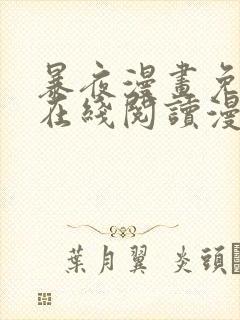 暴夜漫畫免
在綫閱讀漫
葉月翼 炎頭